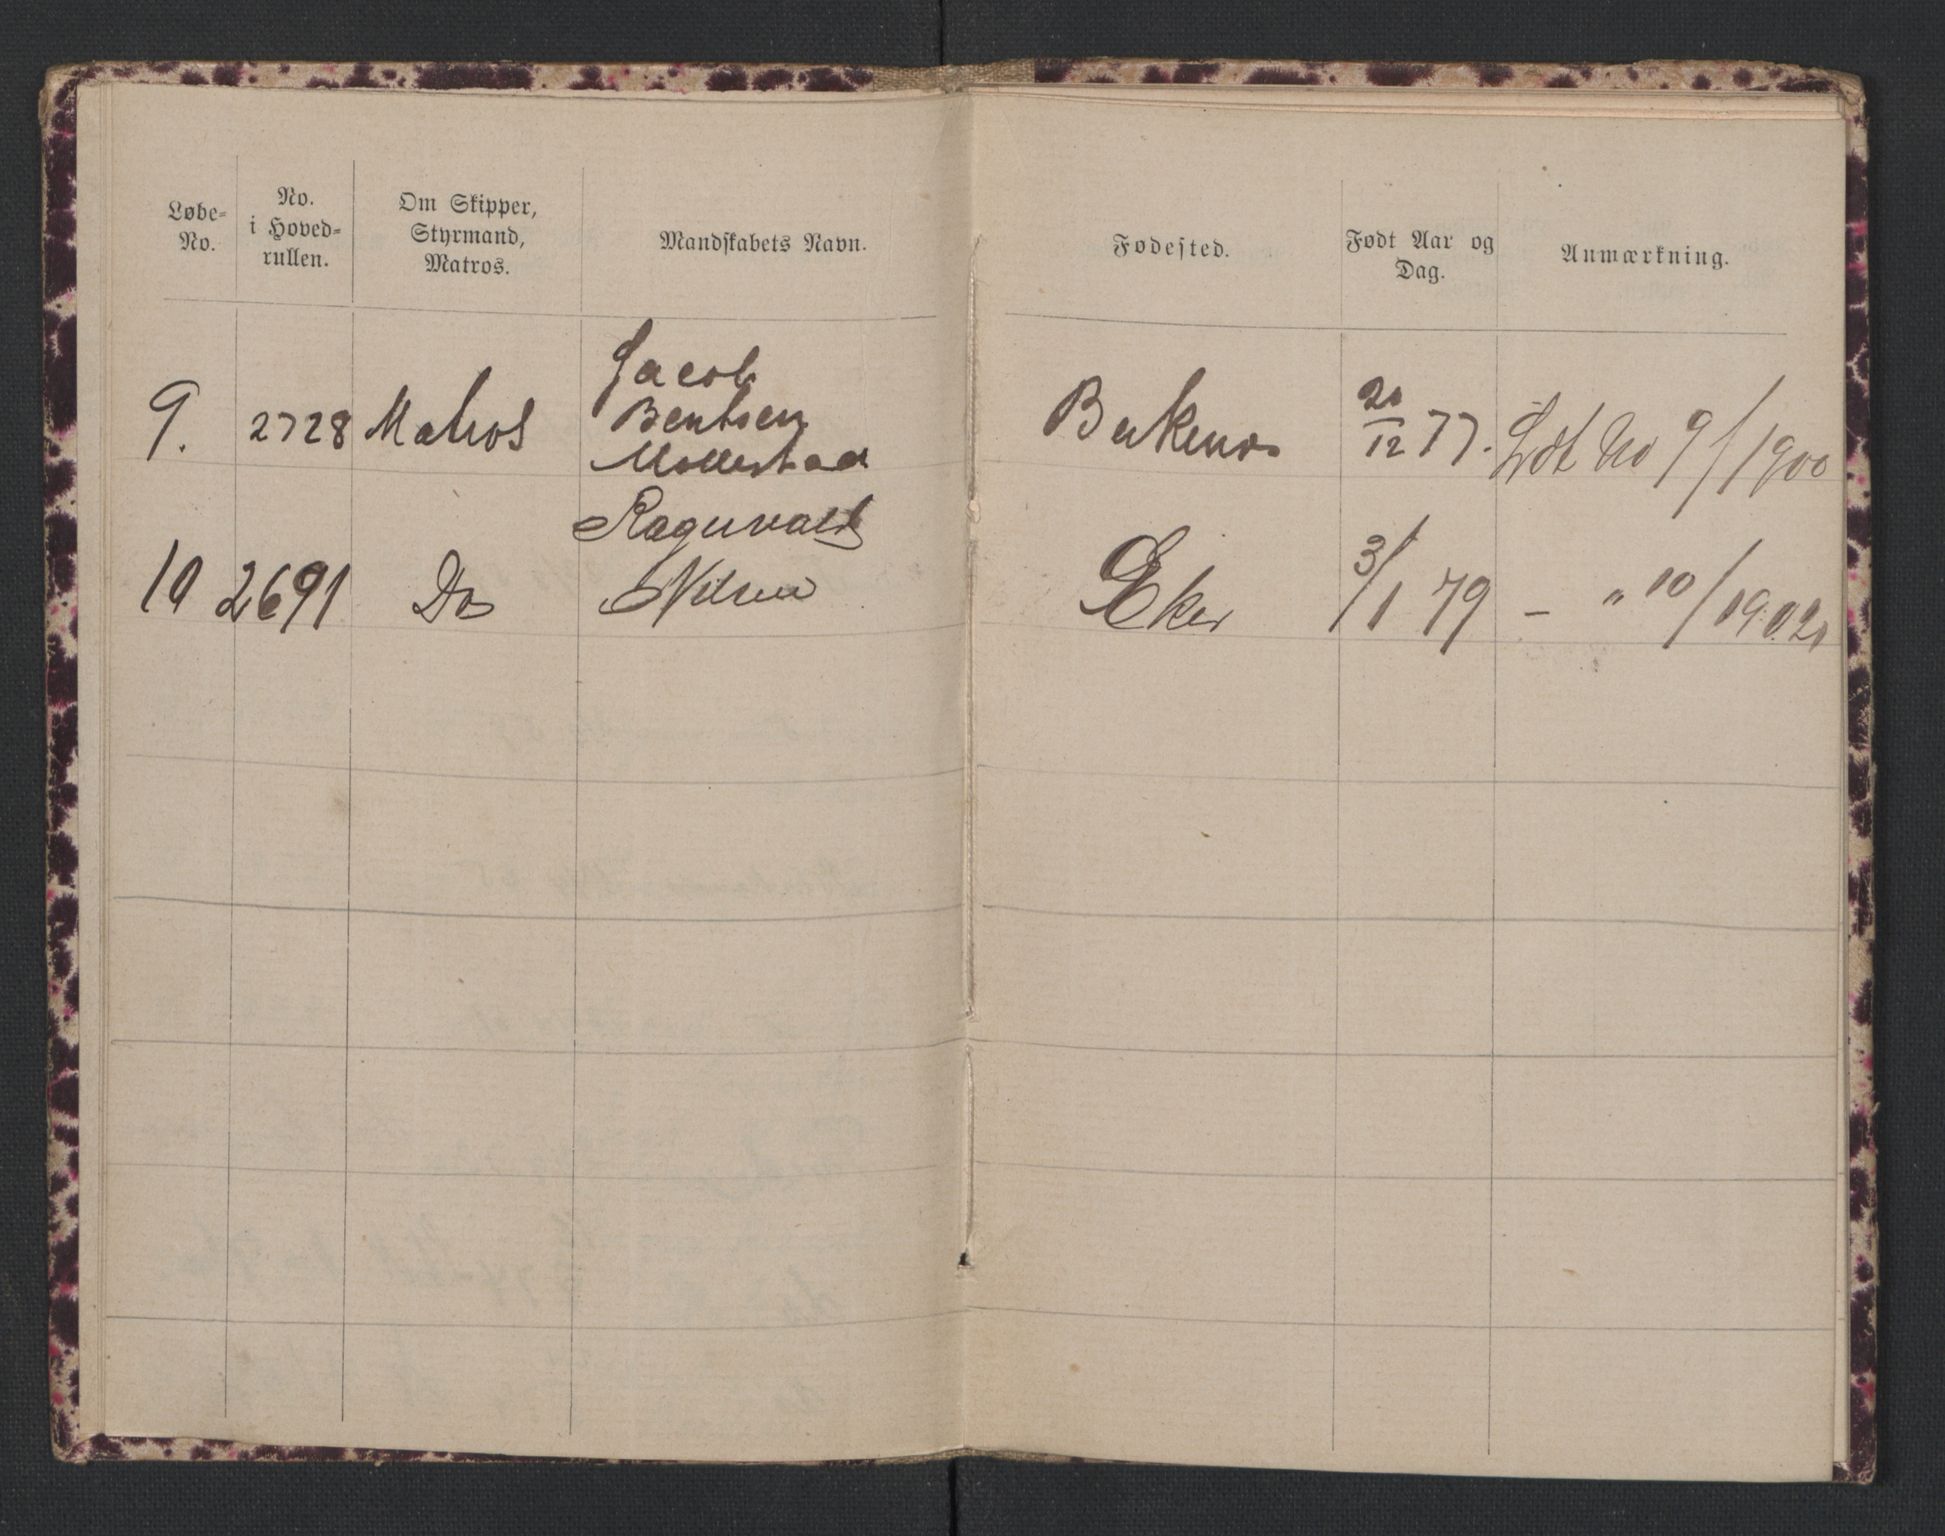 Løbe-
No.
No.
i Hoved-
rullen.
Om Skipper,
Styrmand,
Matros.
Mandskabets Navn.
Fødested.
Født Aar og
Dag.
Anmærkning.
9. 2728 Matros
Jacob
Bentsen
Mollestad
Birkenes
20/12 77.
Ldt No 9/1900
10 2691 Do
Ragnvald
Nilsen
Eker
3/1 79
— " 10/1902